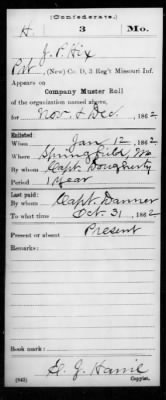 (Confederate.)
H 3 Mo.
J. P. Hix
Pvt, (New) Co. D, 3 Reg't Missouri Inf.
Appears on
Company Muster Roll
of the organization named above,
for Nov. & Dec., 1862.
Enlisted:
When Jan 12, 1862
Where Springfield, Mo
By whom Capt. Dougherty
Period 1 Year
Last paid:
By whom Capt. Danner
To what time Oct. 31, 1862
Present or absent Present
Remarks:
Book mark:
(642) Copyist.